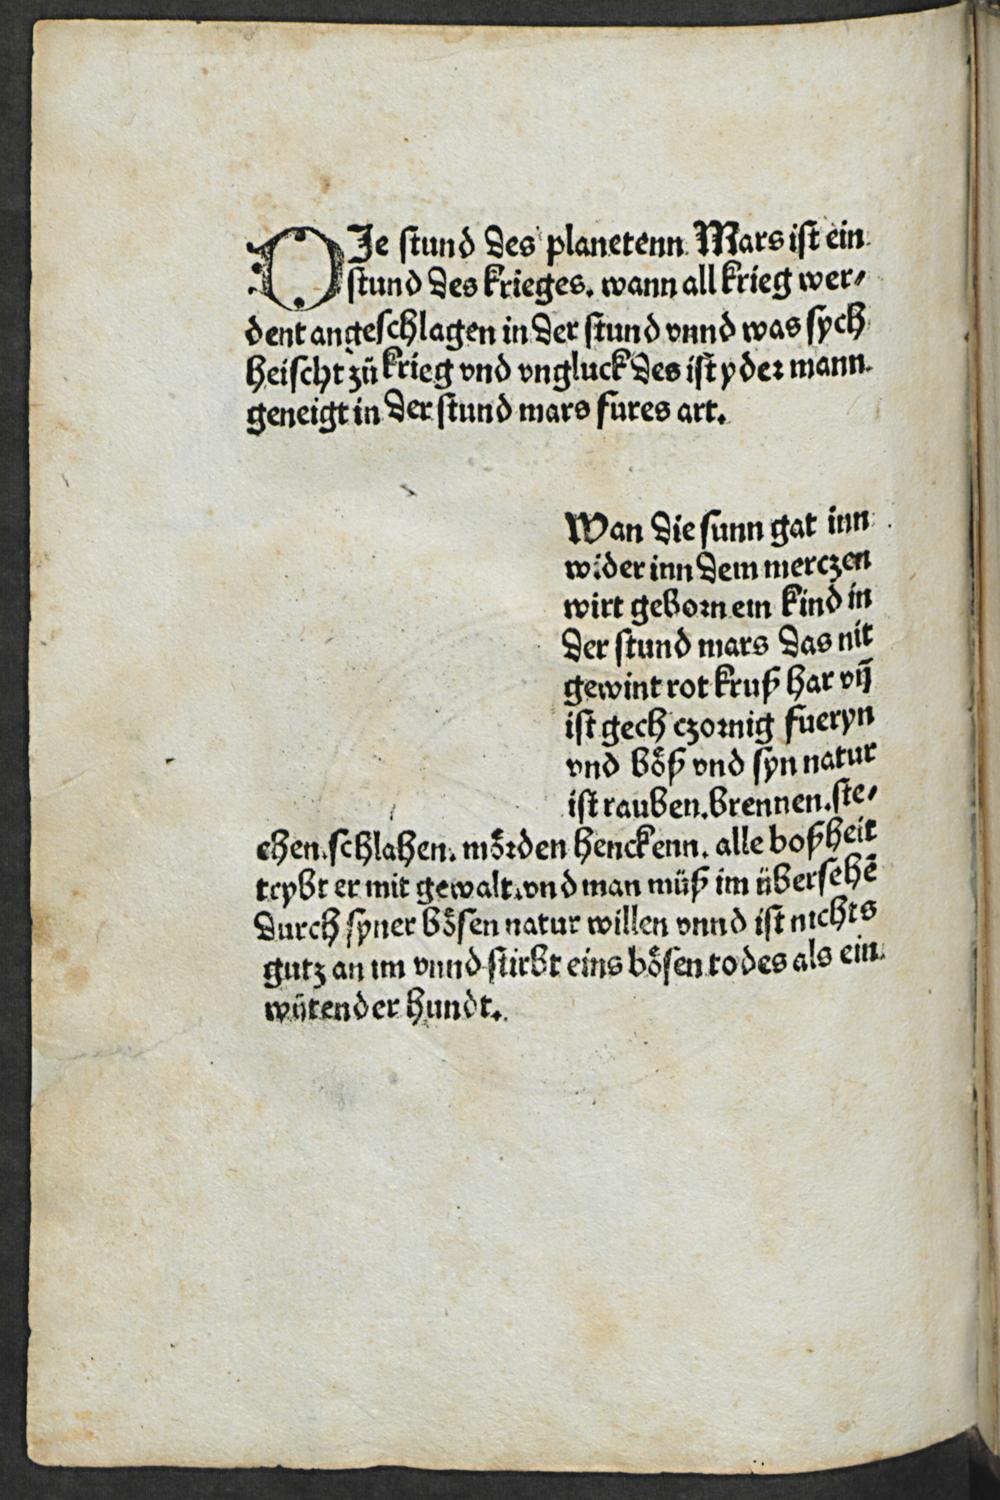 DJe ſtund des planetenn Mars iſt ein
ſtund des krieges. wann all krieg wer⸗
dent angeſchlagen in der ſtund vnnd was ſych
heiſcht zů krieg vnd vngluck des iſt yder mann
geneigt in der ſtund mars fures art.
Wan die ſunn gat inn
wider inn dem merczen
wirt geborn ein kind in
der ſtund mars das nit
gewint rot kruß har vñ
iſt gech czornig fueryn
vnd böß vnd ſyn natur
iſt rauben. brennen. ſte⸗
chen. ſchlahen. mörden henckenn. alle boßheit
trybt er mit gewalt. vnd man müß im überſehē
durch ſyner böſen natur willen vnnd iſt nichts
gutz an im vnnd ſtirbt eins böſen todes als ein
wütender hundt.